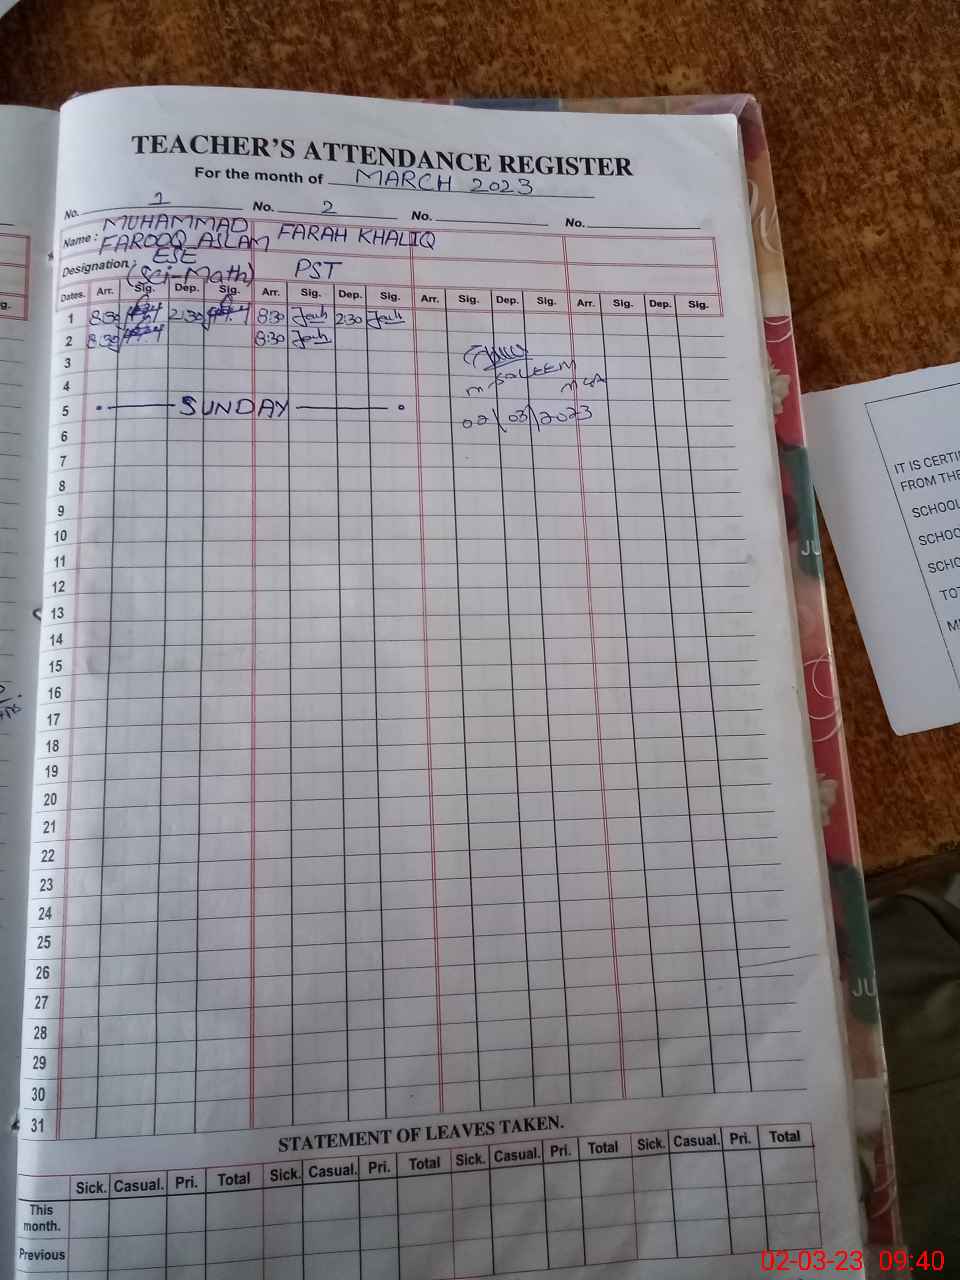 TEACHER'S ATTENDANCE REGISTER
For the month of MARCH 2023
No. 1 No. 2 No. No.
Name: MUHAMMAD FAROOQ ASLAM FARAH KHALIQ
Designation: ESE (Sci-Math) PST
Dates. Arr. Sig. Dep. Sig. Arr. Sig. Dep. Sig. Arr. Sig. Dep. Sig. Arr. Sig. Dep. Sig.
1 8:30 2:30 8:30 2:30
2 8:30 8:30
3
4 SALEEM
5 SUNDAY 02/03/2023
6
7
8
9
10
11
12
13
14
15
16
17
18
19
20
21
22
23
24
25
26
27
28
29
30
31
STATEMENT OF LEAVES TAKEN.
Sick. Casual. Pri. Total Sick. Casual. Pri. Total Sick. Casual. Pri. Total Sick. Casual. Pri. Total
This month.
Previous
IT IS CERTI
FROM THE
SCHOOL
SCHOO
SCHO
TOT
JU
JU
02-03-23 09:40